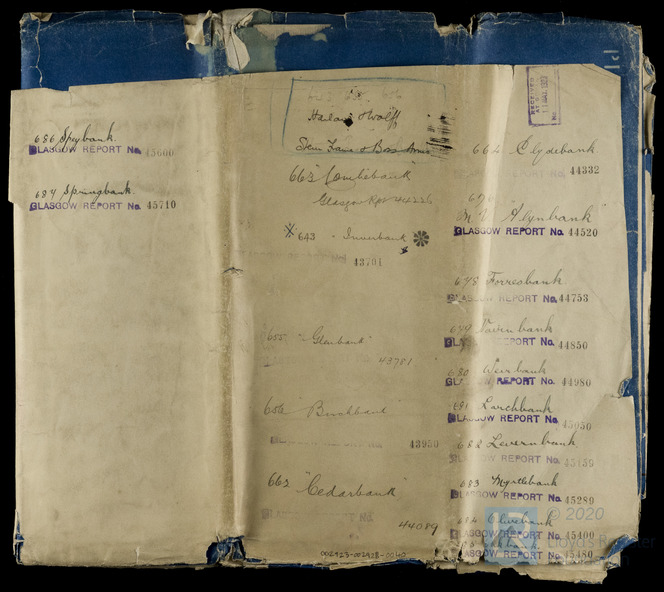 686 Speybank.
GLASGOW REPORT No. 45600
687 Springbank.
GLASGOW REPORT No. 45710
Harland & Wolff
Stern Frame & Boss Arms
663 "Comliebank"
Glasgow Rpt 44226
643 "Inverbank"
43701
655 "Glenbank"
43781
656 Birchbank
43950
662 "Cedarbank"
44089
002923-002928-0040
RECEIVED
Clydebank.
44332
M.V. Alynbank"
GLASGOW REPORT No. 44520
678 Forresbank.
GLASGOW REPORT No. 44753
679 Tavern bank
GLASGOW REPORT No. 44850
680 Weirbank
GLASGOW REPORT No. 44980
681 Larchbank
GLASGOW REPORT No. 45050
682 Levernbank
GLASGOW REPORT No. 45159
683 Myrtlebank
GLASGOW REPORT No. 45289
Olivebank
GLASGOW REPORT No. 45400
GLASGOW REPORT No. 45480
© 2020
Lloyd's Register